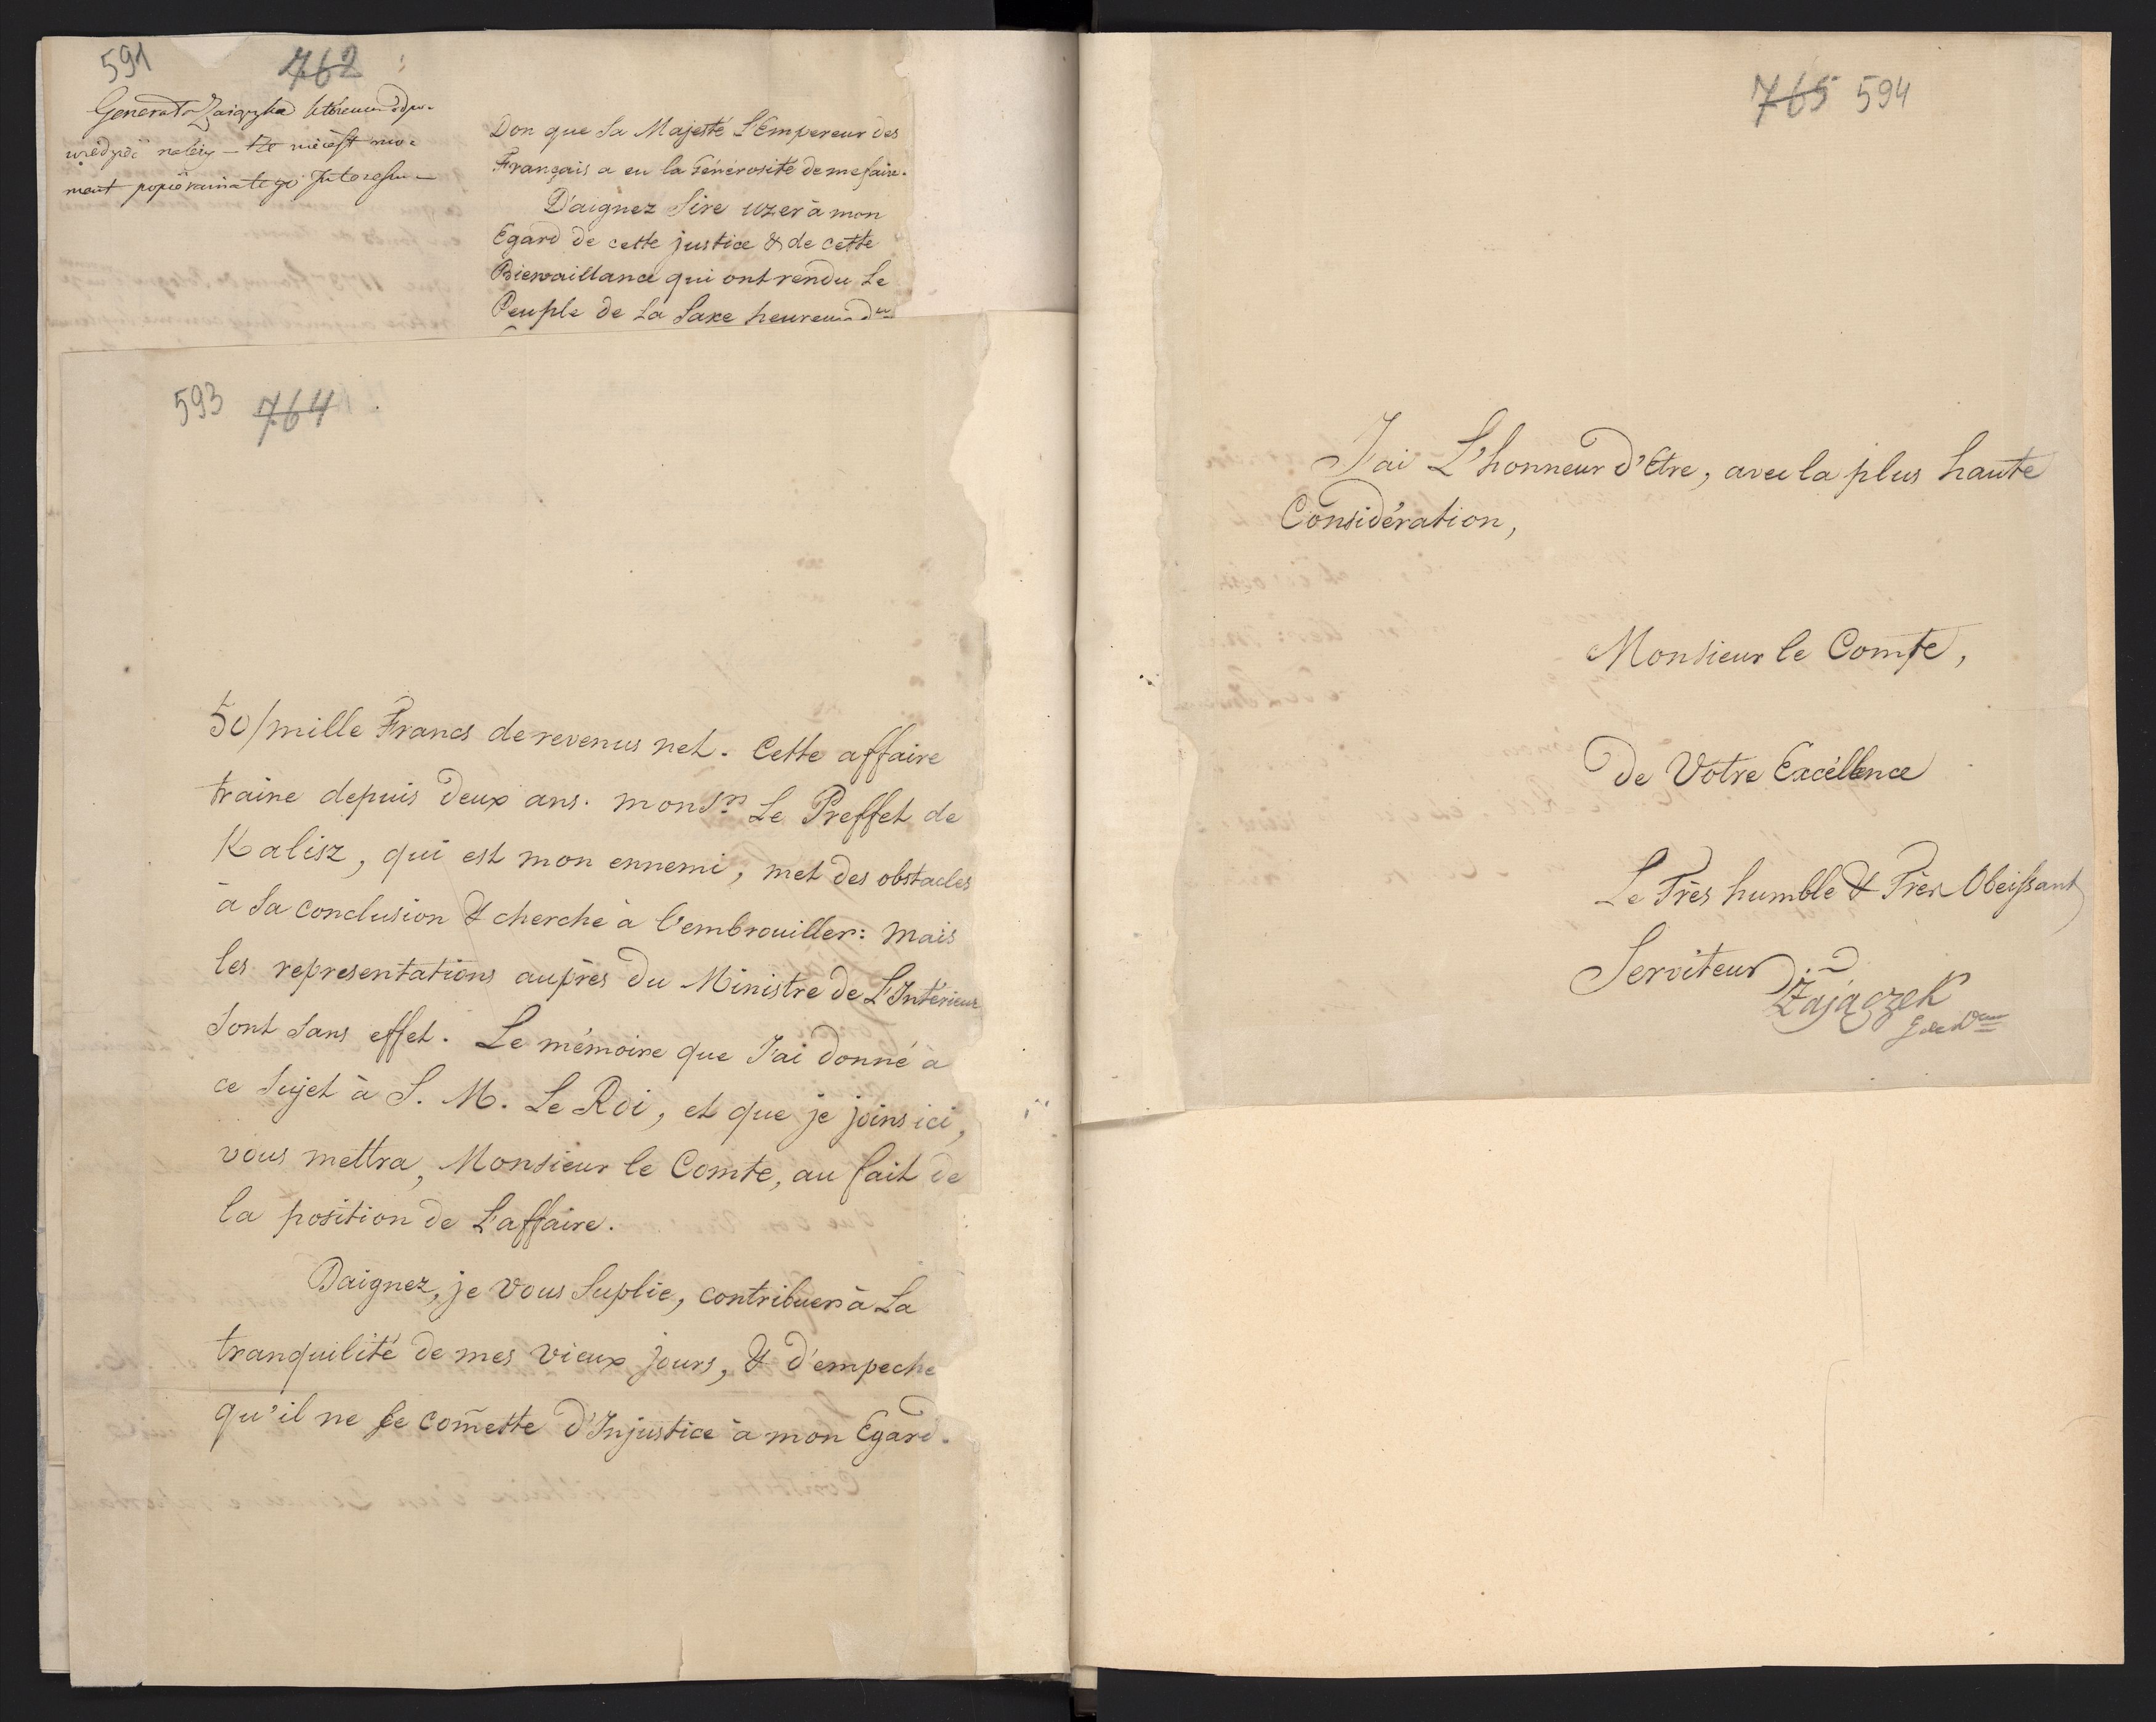 591 762
Generał Zaiączka
Don que Sa Majesté L'Empereur des
Français a eu la Générosité de me faire.
D'aignez Sire uzer à mon
Egard de cette justice & de cette
Bienvaillance qui ont rendu Le
Peuple de La Saxe heureux
593 764
50/mille Francs de revenus net. Cette affaire
traine depuis deux ans. Monsr. Le Preffet de
Kalisz, qui est mon ennemi, met des obstacles
à Sa conclusion & cherche à l'embrouiller: mais
les representations auprès du Ministre de L'Intérieur
Sont Sans effet. Le mémoire que J'ai donné à
ce Sujet à S. M. Le Roi, et que je joins ici,
vous mettra, Monsieur le Comte, au fait de
la position de L'affaire.
Daignez, je vous Suplie, contribuer à La
tranquilité de mes vieux jours, & d'empeche
qu'il ne se com̃ette d'Injustice à mon Egard.
765 594
J'ai L'honneur d'Etre, avec la plus haute
Considération,
Monsieur le Comte,
De Votre Excéllence
Le Très humble & Très Obeissant
Serviteur
Zajączek
G de Don